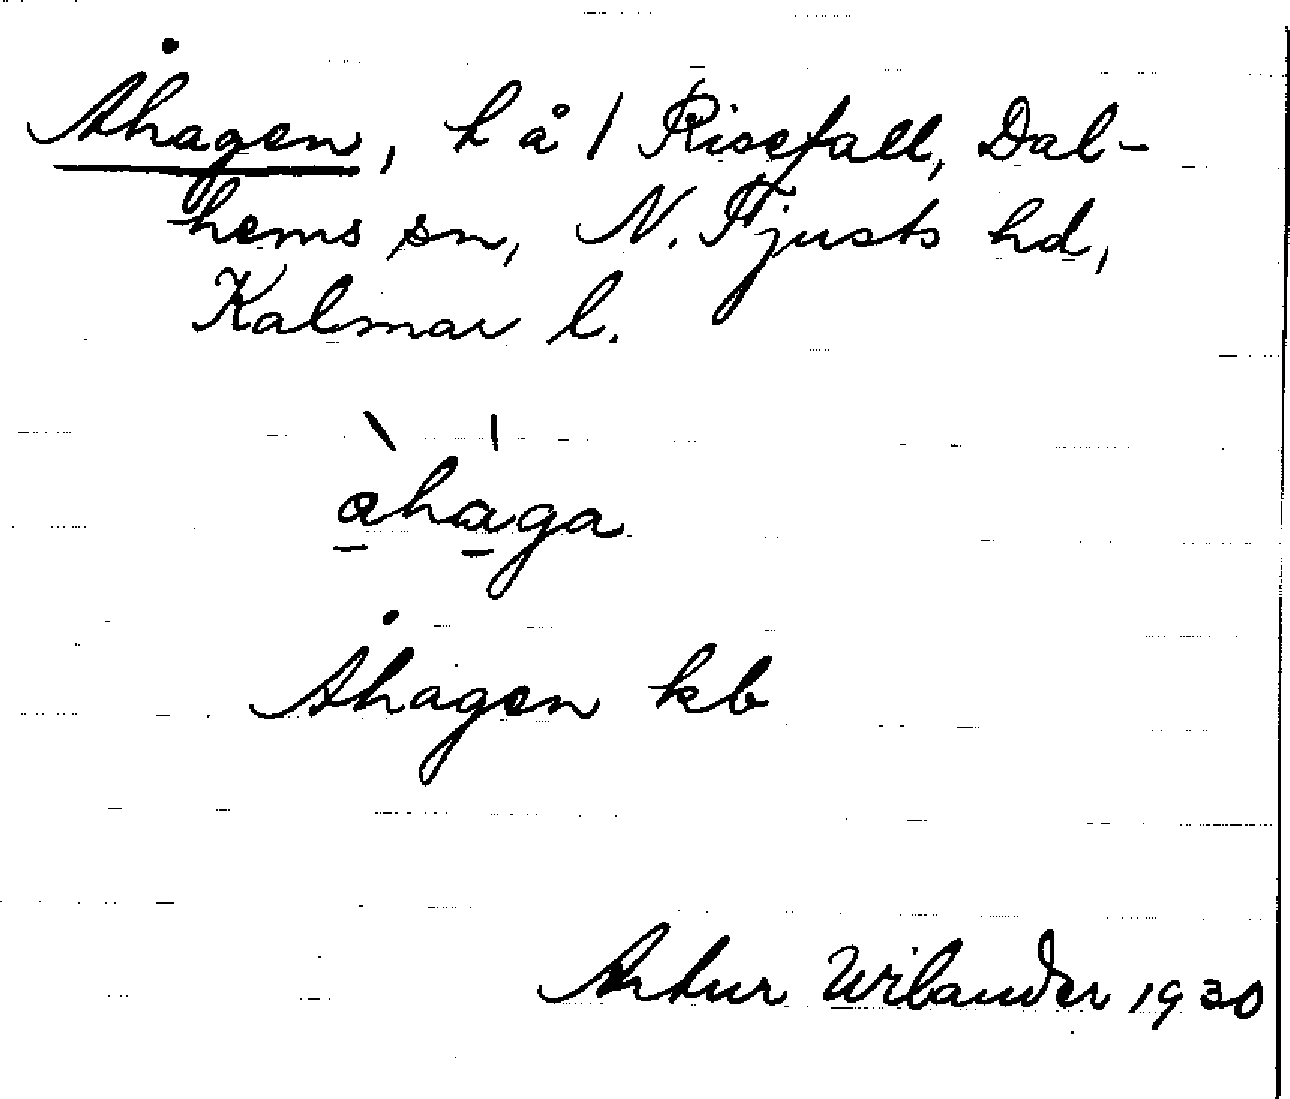 Åhagen, h å / Risefall, Dal-
hems sn, N. Tjusts hd,
Kalmar l.
åhàga
Åhagen kb
Artur Wilander 1930